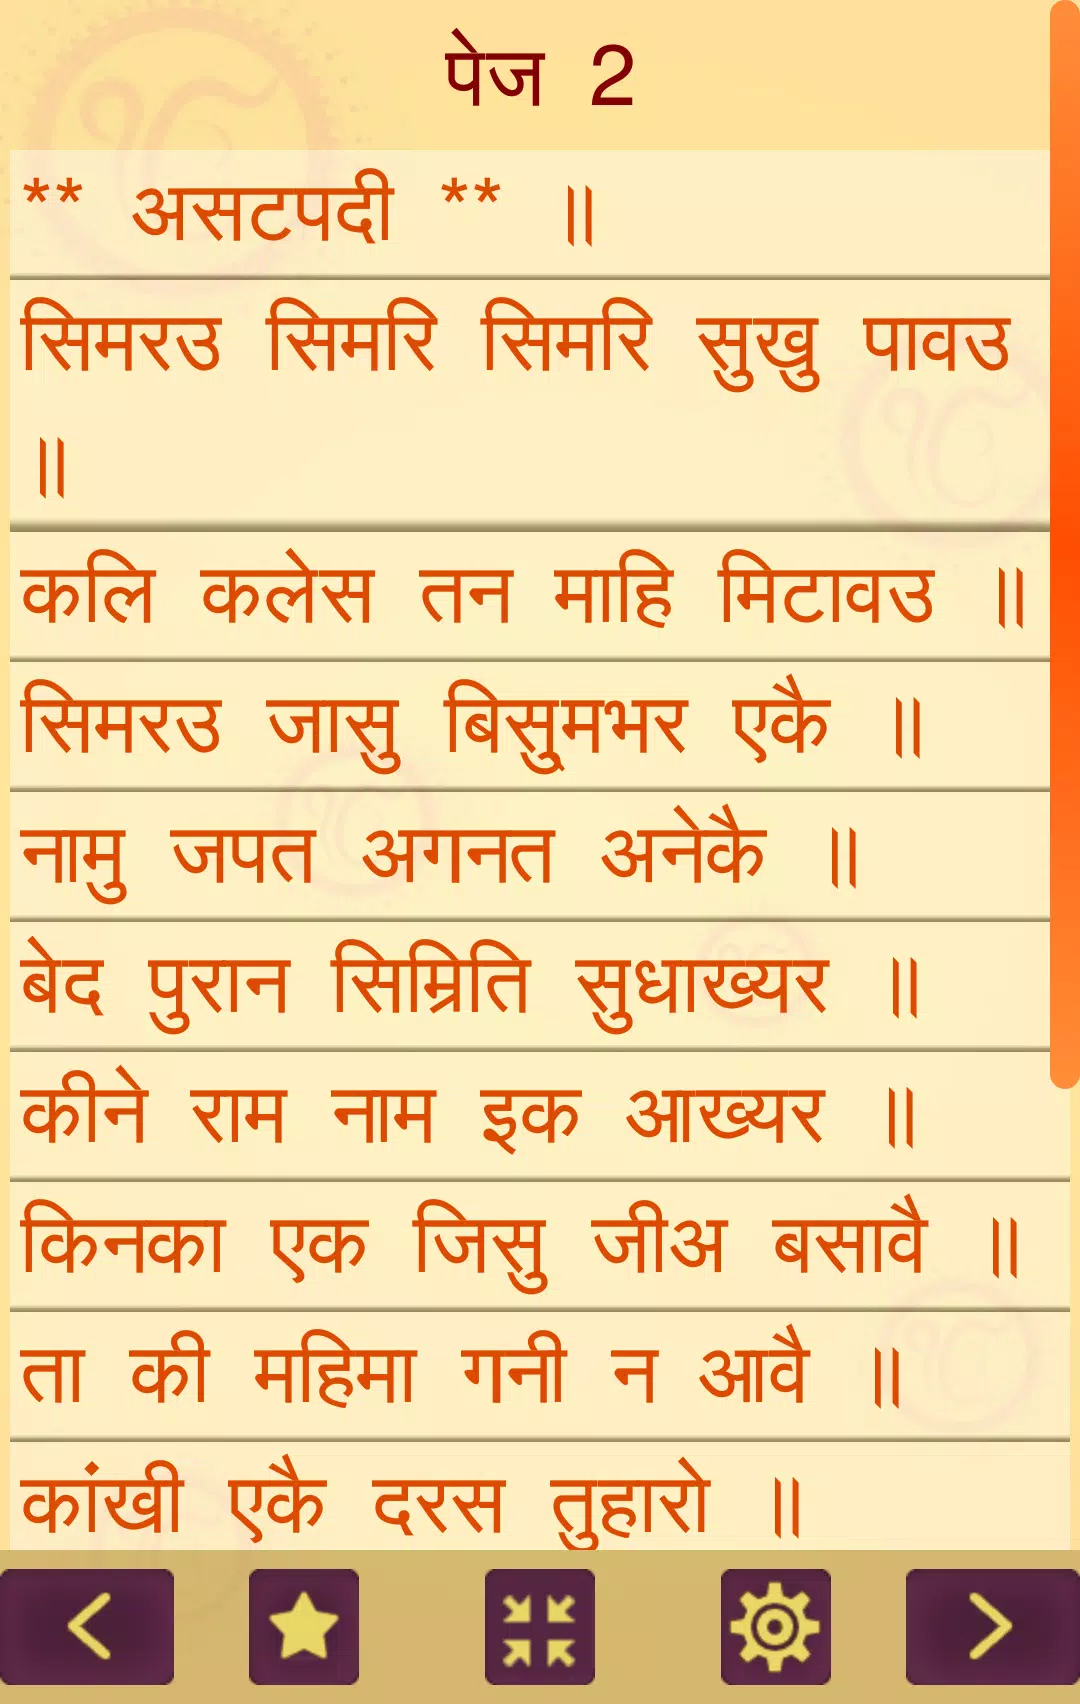 पेज 2
** असटपदी ** ॥
सिमरउ सिमरि सिमरि सुखु पावउ
॥
कलि कलेस तन माहि मिटावउ ॥
सिमरउ जासु बिसु्मभर एकै ॥
नामु जपत अगनत अनेकै ॥
बेद पुरान सिम्रिति सुधाख्यर ॥
कीने राम नाम इक आख्यर ॥
किनका एक जिसु जीअ बसावै ॥
ता की महिमा गनी न आवै ॥
कांखी एकै दरस तुहारो ॥